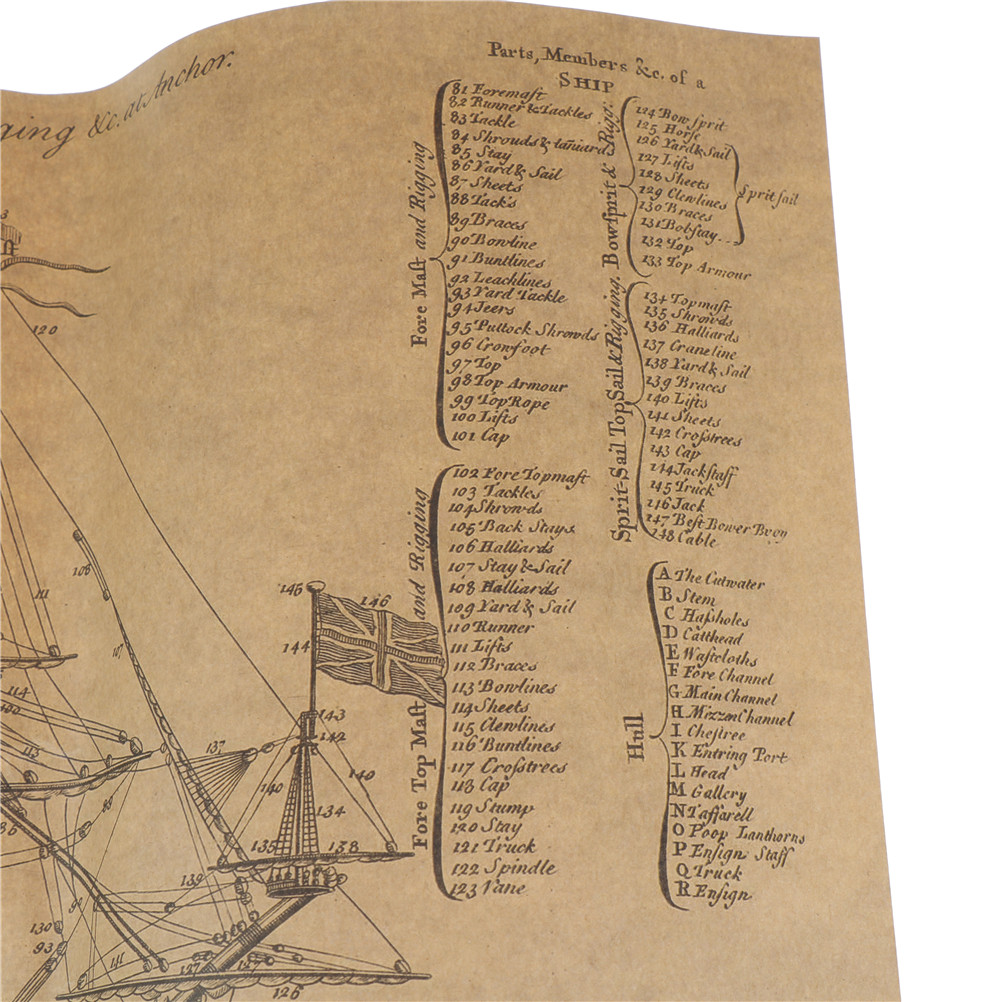 ging &c. at Anchor.
Parts, Members &c. of a
SHIP
Fore Maſt and Rigging
81 Foremaſt
82 Runner & Tackles
83 Tackle
84 Shrouds & laniards
85 Stay
86 Yard & Sail
87 Sheets
88 Tack's
89 Braces
90 Bowline
91 Buntlines
92 Leachlines
93 Yard Tackle
94 Jeers
95 Puttock Shrowds
96 Crowfoot
97 Top
98 Top Armour
99 Top Rope
100 Lifts
101 Cap
Fore Top Maſt and Rigging
102 Fore Topmaſt
103 Tackles
104 Shrowds
105 Back Stays
106 Halliards
107 Stay & Sail
108 Halliards
109 Yard & Sail
110 Runner
111 Lifts
112 Braces
113 Bowlines
114 Sheets
115 Clewlines
116 Buntlines
117 Croſstrees
118 Cap
119 Stump
120 Stay
121 Truck
122 Spindle
123 Vane
Bowſprit & Rigg:
124 Bowſprit
125 Horſe
126 Yard & Sail
127 Lifts
128 Sheets
129 Clewlines
130 Braces
131 Bobstay
132 Top
133 Top Armour
Sprit ſail
Sprit-Sail Top Sail & Rigging.
134 Topmaſt
135 Shrowds
136 Halliards
137 Craneline
138 Yard & Sail
139 Braces
140 Lifts
141 Sheets
142 Croſstrees
143 Cap
144 Jackſtaff
145 Truck
146 Jack
147 Beſt Bower Buoy
148 Cable
Hull
A The Cutwater
B Stem
C Haſsholes
D Catthead
E Waſtcloths
F Fore Channel
G Main Channel
H Mizzen Channel
I Cheſtree
K Entring Port
L Head
M Gallery
N Taffarell
O Poop Lanthorns
P Enſign Staff
Q Truck
R Enſign
120
108
107
111
114
113
145
146
144
143
142
137
140
140
134
135
138
139
130
93
141
127
127
126